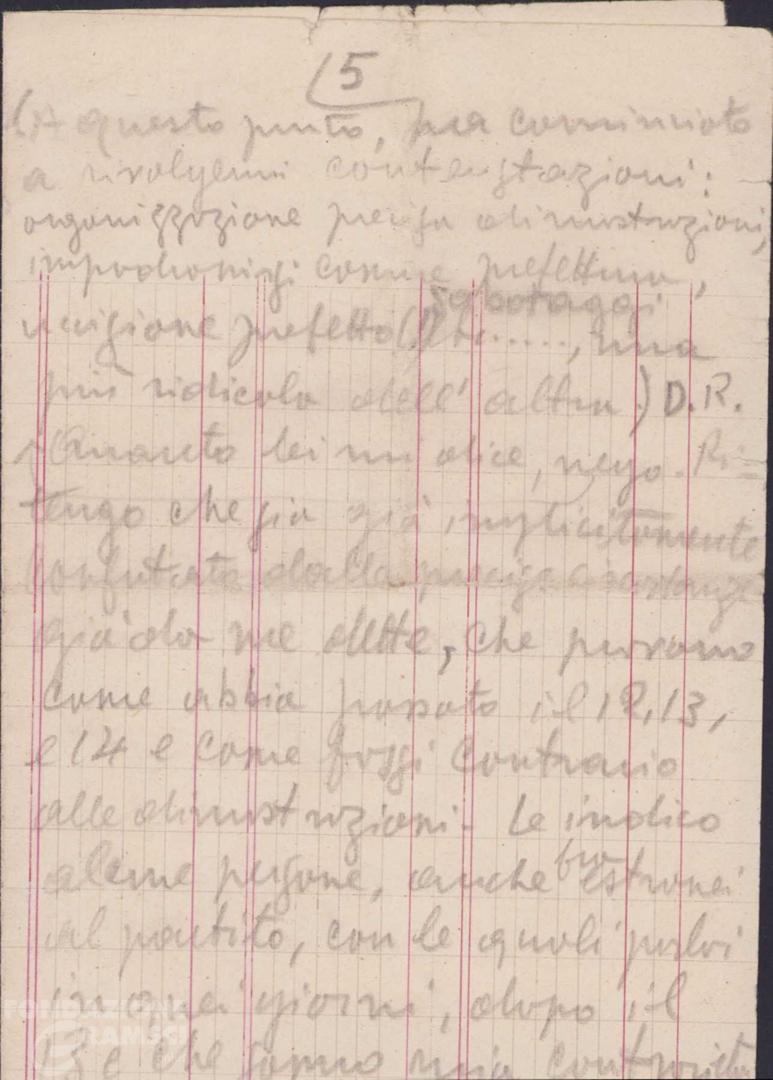 5
(A questo punto, ha cominciato
a rivolgermi contestazioni:
organizzazione precisa dimostrazioni,
impadronirsi comune prefettura,
sabotaggi
uccisione prefetto (!) ....., una
più ridicola dell'altra) D.R.
Quanto lei mi dice, nego. Ri=
tengo che sia già implicitamente
confutato dalle precise circostanze
già da me dette, che provano
come abbia passato il 12, 13,
e 14 e come fossi contrario
alle dimostrazioni. Le indico
alcune persone, anche estranei
al partito, con le quali parlai
in quei giorni, dopo il
13 e che sanno mia contrarietà
FONDAZIONE
GRAMSCI